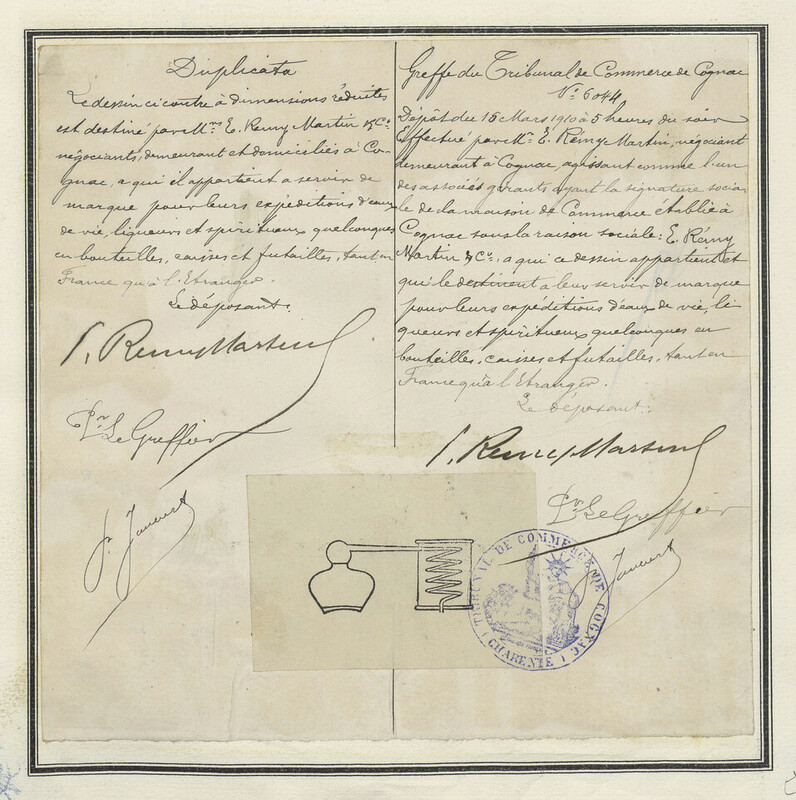 Duplicata
Le dessin ci contre à dimensions réduites
est destiné par Mrs E. Remy Martin & Co
négociants, demeurant et domiciliés à Co-
gnac, a qui il appartient a servir de
marque pour leurs expéditions d'eaux
de vie, liqueurs et spiritueux quelconques
en bouteilles, caisses et futailles, tant en
France qu'à l'Etranger.
Le déposant.
E. Remy Martin
Pr Le Greffier
Greffe du Tribunal de Commerce de Cognac
No 6044
Dépôt du 15 Mars 1910 à 5 heures du soir
Effectué par Mr E. Rémy Martin, négociant
demeurant à Cognac, agissant comme l'un
des associés gérants ayant la signature socia
le de la maison de Commerce établie à
Cognac sous la raison sociale: E. Rémy
Martin & Co, a qui ce dessin appartient et
qui le destinent a leur servir de marque
pour leurs expéditions d'eaux de vie, li
queurs et spiritueux quelconques en
bouteilles, caisses et futailles, tant en
France qu'à l'Etranger.
Le déposant.
E. Remy Martin
Pr Le Greffier
TRIBUNAL DE COMMERCE DE COGNAC
(CHARENTE)